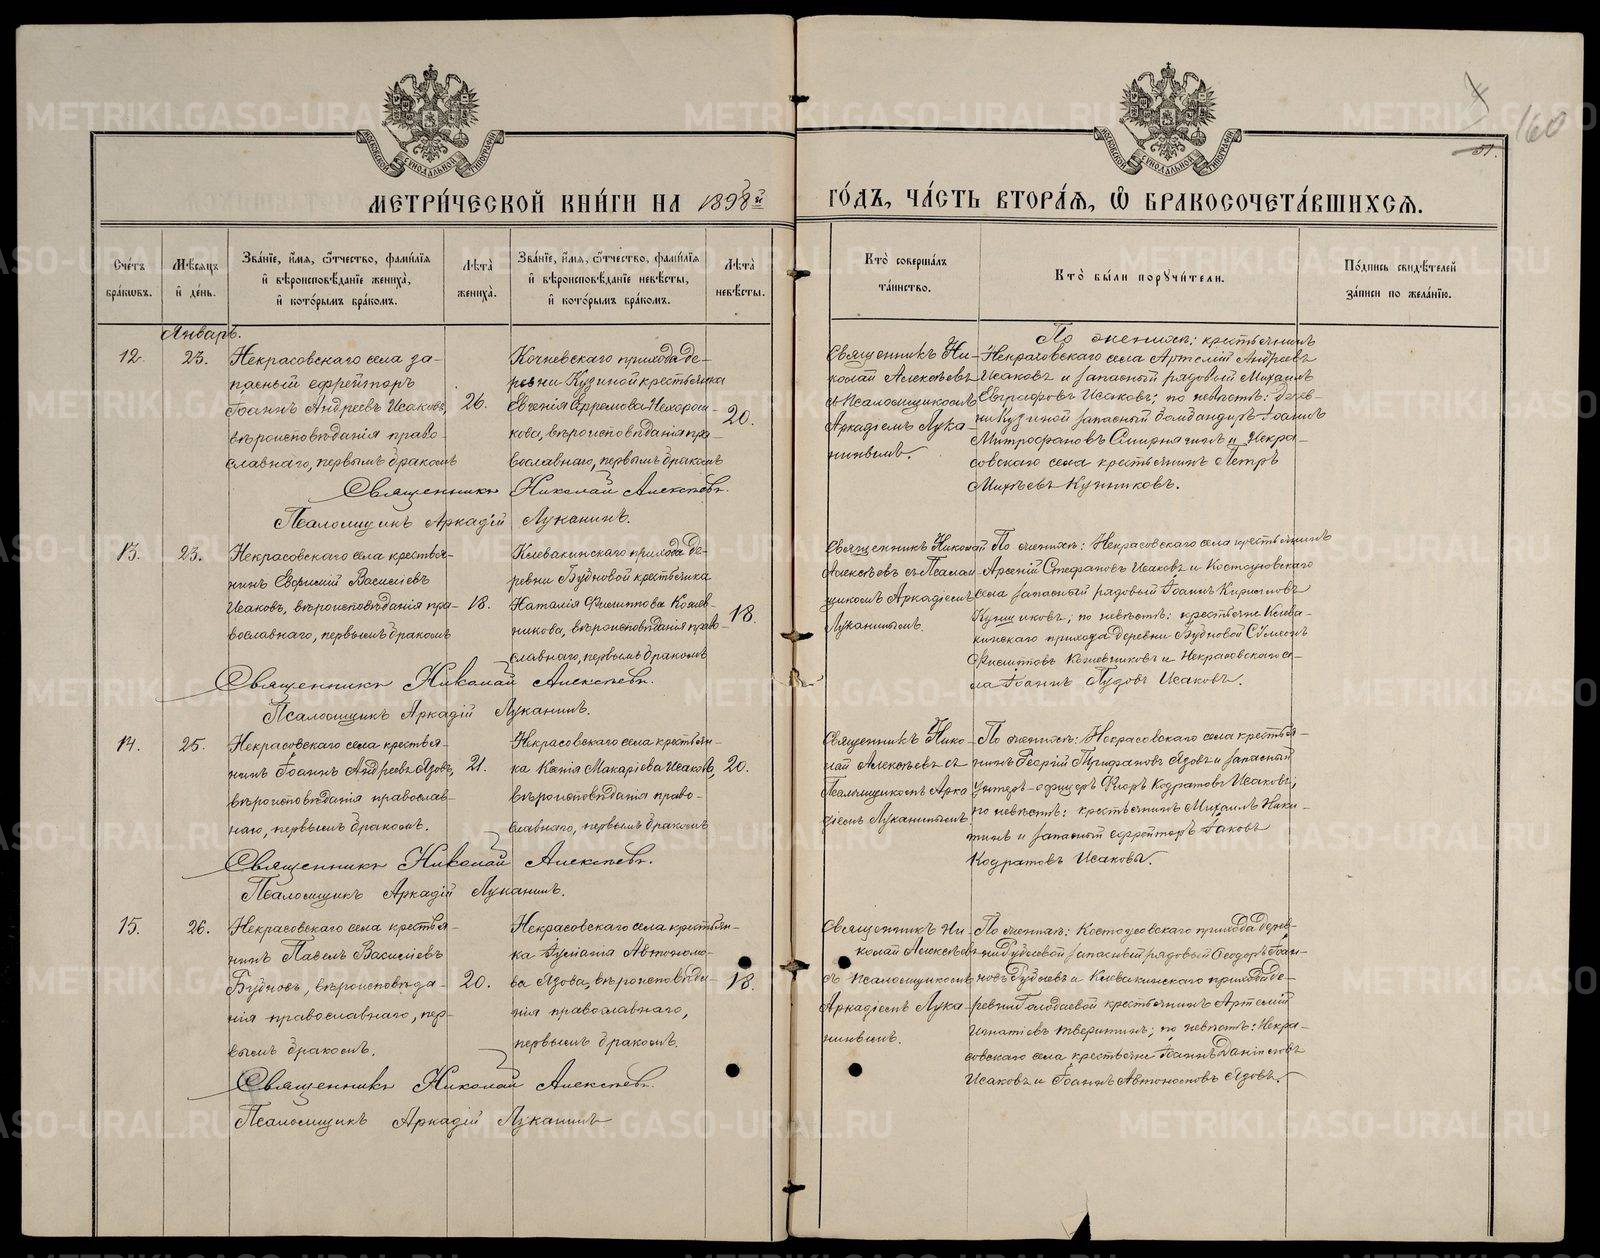 160
51.
МЕТРИ́ЧЕСКОЙ КНИ́ГИ НА 1898й ГО́ДЪ, ЧА́СТЬ ВТОРА́Я, Ѿ БРАКОСОЧЕТА́ВШИХСЯ.
Сче́тъ бра́ковъ.
Мѣ́сяцъ и҆ де́нь.
Зва́нїе, и҆́мя, ѻ҆́тчество, фами́лїя
и҆ вѣроисповѣ́данїе жениха̀,
и҆ кото́рымъ бра́комъ.
Лѣ́та жениха̀.
Зва́нїе, и҆́мя, ѻ҆́тчество, фами́лїя
и҆ вѣроисповѣ́данїе невѣ́сты,
и҆ кото́рымъ бра́комъ.
Лѣ́та невѣ́сты.
Кто̀ соверша́лъ
та́инство.
Кто̀ бы́ли поручи́тели.
По́дпись свидѣ́телей
за́писи по жела́нїю.
Январь.
12.
23.
Некрасовскаго села за-
пасный ефрейторъ
Іоаннъ Андреевъ Исаковъ,
вѣроисповѣданія право-
славнаго, первымъ бракомъ
26.
Кочневскаго прихода де-
ревни Кузиной крестьянка
Евгенія Ефремова Нехорош-
кова, вѣроисповѣданія пра-
вославнаго, первымъ бракомъ
20.
Священникъ Ни-
колай Алексѣевъ
съ Псаломщикомъ
Аркадіемъ Лука-
нинымъ.
По женихѣ: крестьянинъ
Некрасовскаго села Артемій Андреевъ
Исаковъ и запасный рядовый Михаилъ
Евграфовъ Исаковъ; по невѣстѣ: дерев-
ни Кузиной запасный бомбандиръ Іоаннъ
Митрофановъ Смирнягинъ и Некра-
совскаго села крестьянинъ Петръ
Михѣевъ Кушниковъ.
Священникъ Николай Алексѣевъ.
Псаломщикъ Аркадій Луканинъ.
13.
23.
Некрасовскаго села крестья-
нинъ Евфимій Василіевъ
Исаковъ, вѣроисповѣданія пра-
вославнаго, первымъ бракомъ
18.
Клевакинскаго прихода де-
ревни Бубновой крестьянка
Наталія Филиппова Кожев-
никова, вѣроисповѣданія право-
славнаго, первымъ бракомъ
18.
Священникъ Николай
Алексѣевъ съ Псалом-
щикомъ Аркадіемъ
Луканинымъ.
По женихѣ: Некрасовскаго села крестьянинъ
Арсеній Стефановъ Исаковъ и Костоусовскаго
села запасный рядовый Іоаннъ Кирилловъ
Кушниковъ; по невѣстѣ: крестьяне Клева-
кинскаго прихода деревни Бубновой Сѵмеонъ
Филипповъ Кожевниковъ и Некрасовскаго се-
ла Іоаннъ Пудовъ Исаковъ.
Священникъ Николай Алексѣевъ.
Псаломщикъ Аркадій Луканинъ.
14.
25.
Некрасовскаго села крестья-
нинъ Іоаннъ Андреевъ Язовъ,
вѣроисповѣданія православ-
наго, первымъ бракомъ.
21.
Некрасовскаго села крестьян-
ка Ксенія Макаріева Исакова,
вѣроисповѣданія право-
славнаго, первымъ бракомъ
20.
Священникъ Нико-
лай Алексѣевъ съ
Псаломщикомъ Арка-
діемъ Луканинымъ.
По женихѣ: Некрасовскаго села крестья-
нинъ Георгій Трифановъ Язовъ и запасный
унтеръ-офицеръ Флоръ Кодратовъ Исаковъ;
по невѣстѣ: крестьянинъ Михаилъ Ники-
тинъ и запасный ефрейторъ Іаковъ
Кодратовъ Исаковы.
Священникъ Николай Алексѣевъ.
Псаломщикъ Аркадій Луканинъ.
15.
26.
Некрасовскаго села крестья-
нинъ Павелъ Василіевъ
Бубновъ, вѣроисповѣда-
нія православнаго, пер-
вымъ бракомъ.
20.
Некрасовскаго села крестьян-
ка Іуліанія Автономо-
ва Язова, вѣроисповѣда-
нія православнаго,
первымъ бракомъ.
18.
Священникъ Ни-
колай Алексѣевъ
съ Псаломщикомъ
Аркадіемъ Лука-
нинымъ.
По женихѣ: Костоусовскаго прихода дерев-
запасный рядовый Ѳеодоръ Іоан-
новъ и Клевакинскаго прихода де-
ревни Голодаевой крестьянинъ Артемій
Игнатіевъ Тверитинъ; по невѣстѣ: Некра-
совскаго села крестьяне Іоаннъ Даніиловъ
Исаковъ и Іоаннъ Автономовъ Язовъ.
Священникъ Николай Алексѣевъ.
Псаломщикъ Аркадій Луканинъ
METRIKI.GASO-URAL.RU